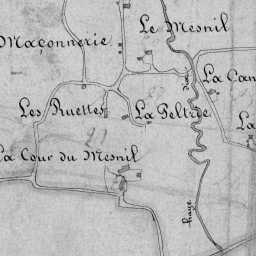 Le Mesnil
Maçonnerie
La Can
Les Ruettes
La Peltrie
La
La Cour du Mesnil